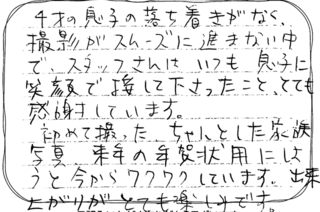 4才の息子の落ち着きがなく、
撮影がスムーズに進きない中
で、スタッフさんは いつも 息子に
笑顔で接して下さったこと、とても
感謝しています。
初めて撮った、ちゃんとした家族
写真、来年の年賀状用にしよ
うと今からワクワクしています。出来
上がりがとても楽しみです。